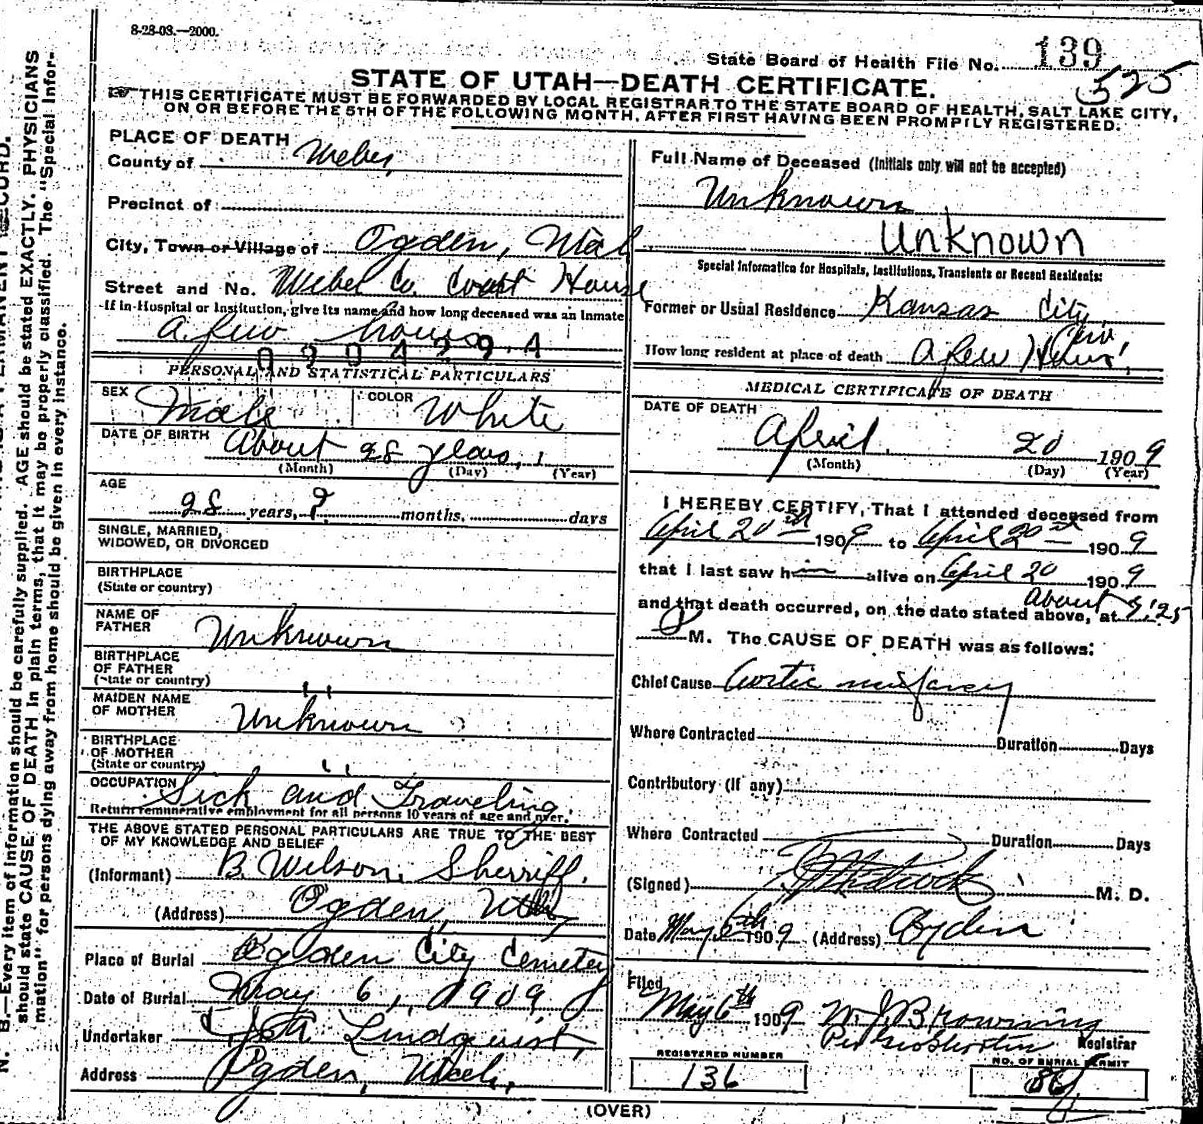 8-28-03.—2000.
State Board of Health File No. 139
525
STATE OF UTAH—DEATH CERTIFICATE.
THIS CERTIFICATE MUST BE FORWARDED BY LOCAL REGISTRAR TO THE STATE BOARD OF HEALTH, SALT LAKE CITY,
ON OR BEFORE THE 5TH OF THE FOLLOWING MONTH, AFTER FIRST HAVING BEEN PROMPTLY REGISTERED.
PLACE OF DEATH
County of Weber
Precinct of
City, Town or Village of Ogden, Utah
Street and No. Weber Co. Court House
If in Hospital or Institution, give its name and how long deceased was an Inmate
a few hours
0904294
PERSONAL AND STATISTICAL PARTICULARS
SEX Male COLOR White
DATE OF BIRTH About 28 years,
(Month) (Day) (Year)
AGE
28 years, ? months, days
SINGLE, MARRIED,
WIDOWED, OR DIVORCED
BIRTHPLACE
(State or country)
NAME OF
FATHER Unknown
BIRTHPLACE
OF FATHER
(State or country) "
MAIDEN NAME
OF MOTHER Unknown
BIRTHPLACE
OF MOTHER
(State or country) "
OCCUPATION Sick and Traveling.
Return remunerative employment for all persons 10 years of age and over.
THE ABOVE STATED PERSONAL PARTICULARS ARE TRUE TO THE BEST
OF MY KNOWLEDGE AND BELIEF
(Informant) B. Wilson, Sherriff.
(Address) Ogden, Utah,
Place of Burial Ogden City Cemetery
Date of Burial May 6, 1909
Undertaker Lindquist,
Address Ogden, Utah.
Full Name of Deceased (Initials only will not be accepted)
Unknown
Unknown
Special Information for Hospitals, Institutions, Transients or Recent Residents:
Former or Usual Residence Kansas City,
How long resident at place of death A few Hours,
MEDICAL CERTIFICATE OF DEATH
DATE OF DEATH
April 20 1909
(Month) (Day) (Year)
I HEREBY CERTIFY, That I attended deceased from
April 20 1909 to April 20 1909
that I last saw him alive on April 20 1909
About
and that death occurred, on the date stated above, at
M. The CAUSE OF DEATH was as follows:
Chief Cause Aortic
Where Contracted Duration Days
Contributory (If any)
Where Contracted Duration Days
(Signed) M. D.
Date May 1909 (Address) Ogden
Filed
May 6th 1909 W. J. Browning
Registrar
REGISTERED NUMBER
136
NO. OF BURIAL PERMIT
(OVER)
N. B.—Every item of information should be carefully supplied. AGE should be stated EXACTLY. PHYSICIANS
should state CAUSE OF DEATH in plain terms, that it may be properly classified. The "Special Infor-
mation" for persons dying away from home should be given in every instance.